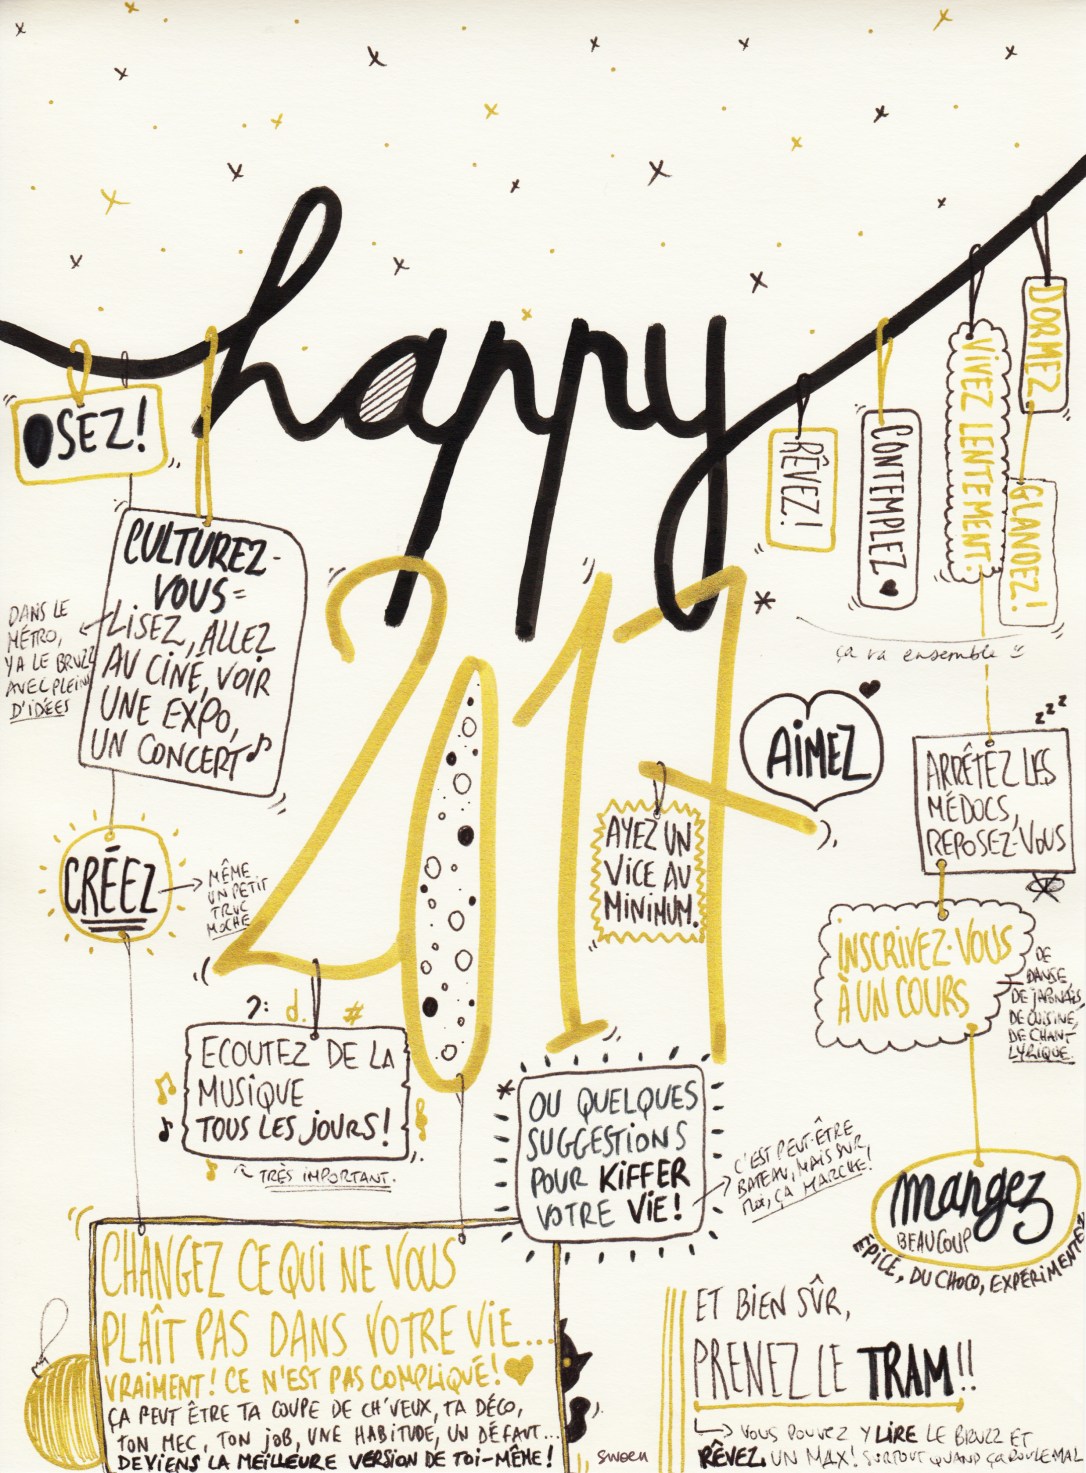 happy
2017
OSEZ!
CULTUREZ-
VOUS=
LISEZ, ALLEZ
AU CINÉ, VOIR
UNE EXPO,
UN CONCERT
DANS LE
MÉTRO,
Y A LE BRUZZ
AVEC PLEIN
D'IDÉES
CRÉEZ
MÊME
UN PETIT
TRUC
MOCHE
ECOUTEZ DE LA
MUSIQUE
TOUS LES JOURS!
TRÈS IMPORTANT.
RÊVEZ!
CONTEMPLEZ
VIVEZ LENTEMENT.
DORMEZ
GLANDEZ!
ça va ensemble
AIMEZ
AYEZ UN
VICE AU
MINIMUM.
zzz
ARRÊTEZ LES
MÉDOCS,
REPOSEZ-VOUS
INSCRIVEZ-VOUS
À UN COURS
DE
DANSE,
DE JAPONAIS,
DE CUISINE,
DE CHANT
LYRIQUE.
mangez
BEAUCOUP
ÉPICÉ, DU CHOCO, EXPÉRIMENTEZ
* OU QUELQUES
SUGGESTIONS
POUR KIFFER
VOTRE VIE!
C'EST PEUT-ÊTRE
BATEAU, MAIS SUR
MOI, ÇA MARCHE!
CHANGEZ CE QUI NE VOUS
PLAÎT PAS DANS VOTRE VIE...
VRAIMENT! CE N'EST PAS COMPLIQUÉ!
ÇA PEUT ÊTRE TA COUPE DE CH'VEUX, TA DÉCO,
TON MEC, TON JOB, UNE HABITUDE, UN DÉFAUT...
DEVIENS LA MEILLEURE VERSION DE TOI-MÊME!
ET BIEN SÛR,
PRENEZ LE TRAM!!
VOUS POUVEZ Y LIRE LE BRUZZ ET
RÊVEZ UN MAX! SURTOUT QUAND ÇA ROULE MAL